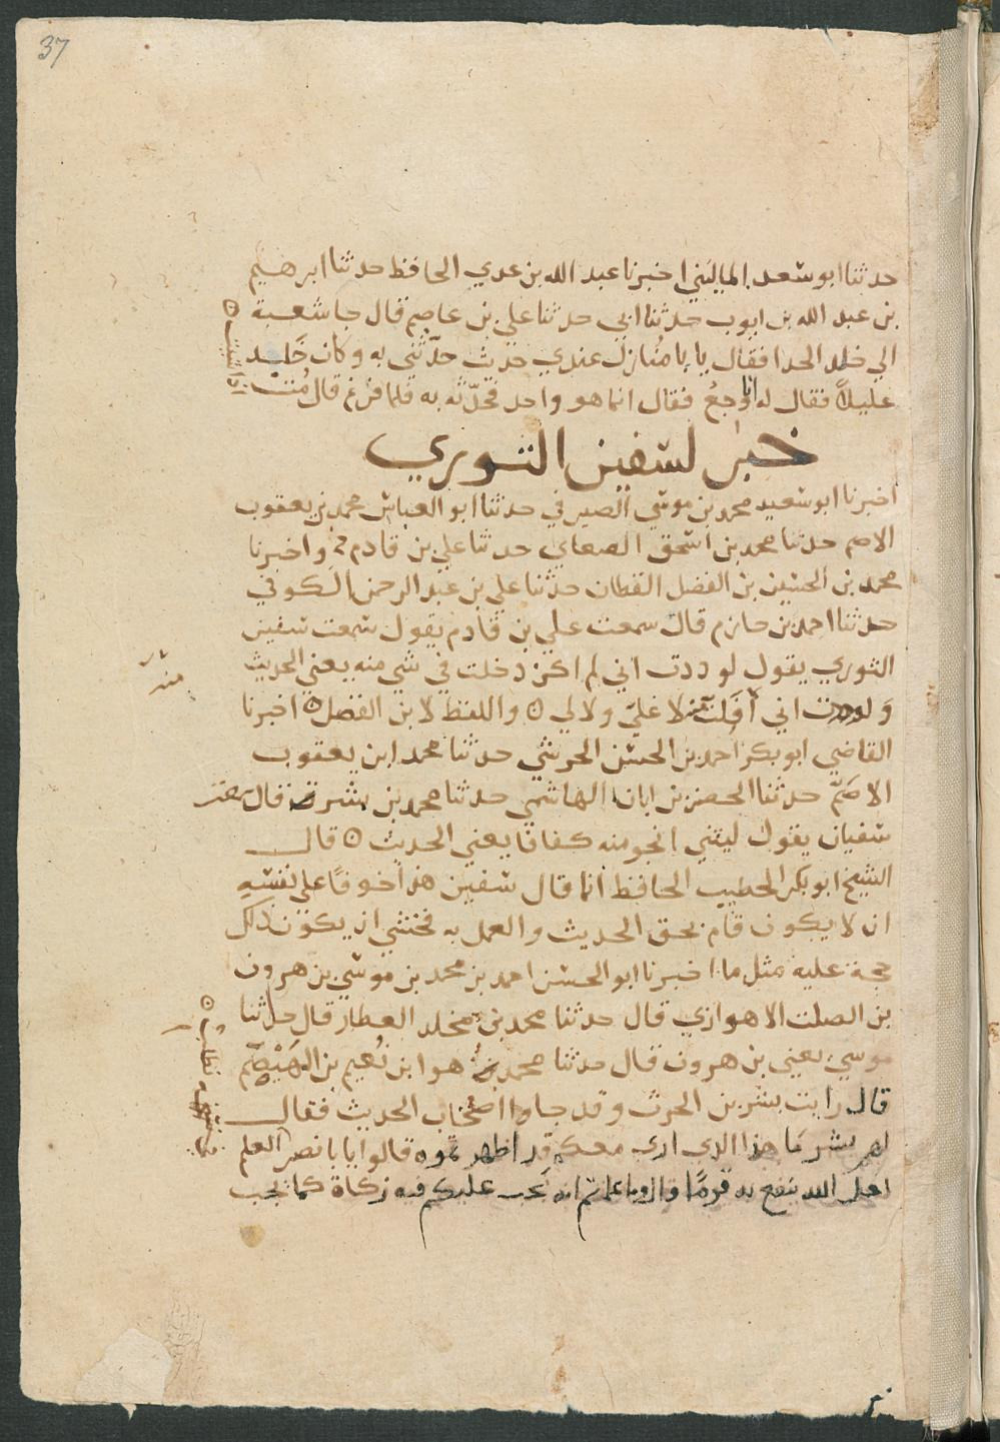 37
حدثنا ابو سعد الماليني اخبرنا عبد الله بن عدي الحافظ حدثنا ابرهيم
بن عبد الله بن ايوب حدثنا ابي حدثنا علي بن عاصم قال جا شعبة
الي خلد الحدا فقال يا با منازل عندي حديث حدّثني به وكان خَلِد
عليلاً فقال له انا وجعُ فقال انما هو واحد فحدّثه به فلما فرغ قال مُت
خبر لسفين الثوري
اخبرنا ابو سعيد محمد بن موسي الصيرفي حدثنا ابو العباس محمد بن يعقوب
الاصم حدثنا محمد بن اسحق الصغاي حدثنا علي بن قادم ح واخبرنا
محمد بن الحسين بن الفضل القطان حدثنا علي بن عبد الرحمن الكوفي
حدثنا احمد بن حازم قال سمعت علي بن قادم يقول سمعت سفين
الثوري يقول لو ددت اني لم اكن دخلت في شي منه يعني الحديث
ولوددت اني أَفلت منه لا عليّ ولا لي ه واللفظ لابن الفضل ه اخبرنا
القاضي ابو بكر احمد بن الحسن الحرشي حدثنا محمد ابن يعقوب
الاصَمّ حدثنا الحسن بن ابان الهاشمي حدثنا محمد بن بشر قال سمعت
سفيان يقول ليتني انجو منه كفافا يعني الحديث ه قال
الشيخ ابو بكر الخطيب الحافظ انما قال سفين هذا خوفًا على نفسه
ان لا يكون قام بحق الحديث والعمل به فخشي ان يكون ذلك
حجة عليه مثل ما اخبرنا ابو الحسن احمد بن محمد بن موسي بن هرون
بن الصلت الاهوازي قال حدثنا محمد بن مخلد العطار قال حدثنا
موسي يعني بن هرون قال حدثنا محمد هو ابن نُعيم بن الهَيْصَم
قال رايت بشر بن الحرث وقد جاوا اصحاب الحديث فقال
لهم بشر مَا هذا الذي اري معكم قد اظهرتموه قالوا يا با نصر العلم
لعل الله ينفع به قومًا قال وما علمتم انه يجب عليكم فيه زكاة كما يجب